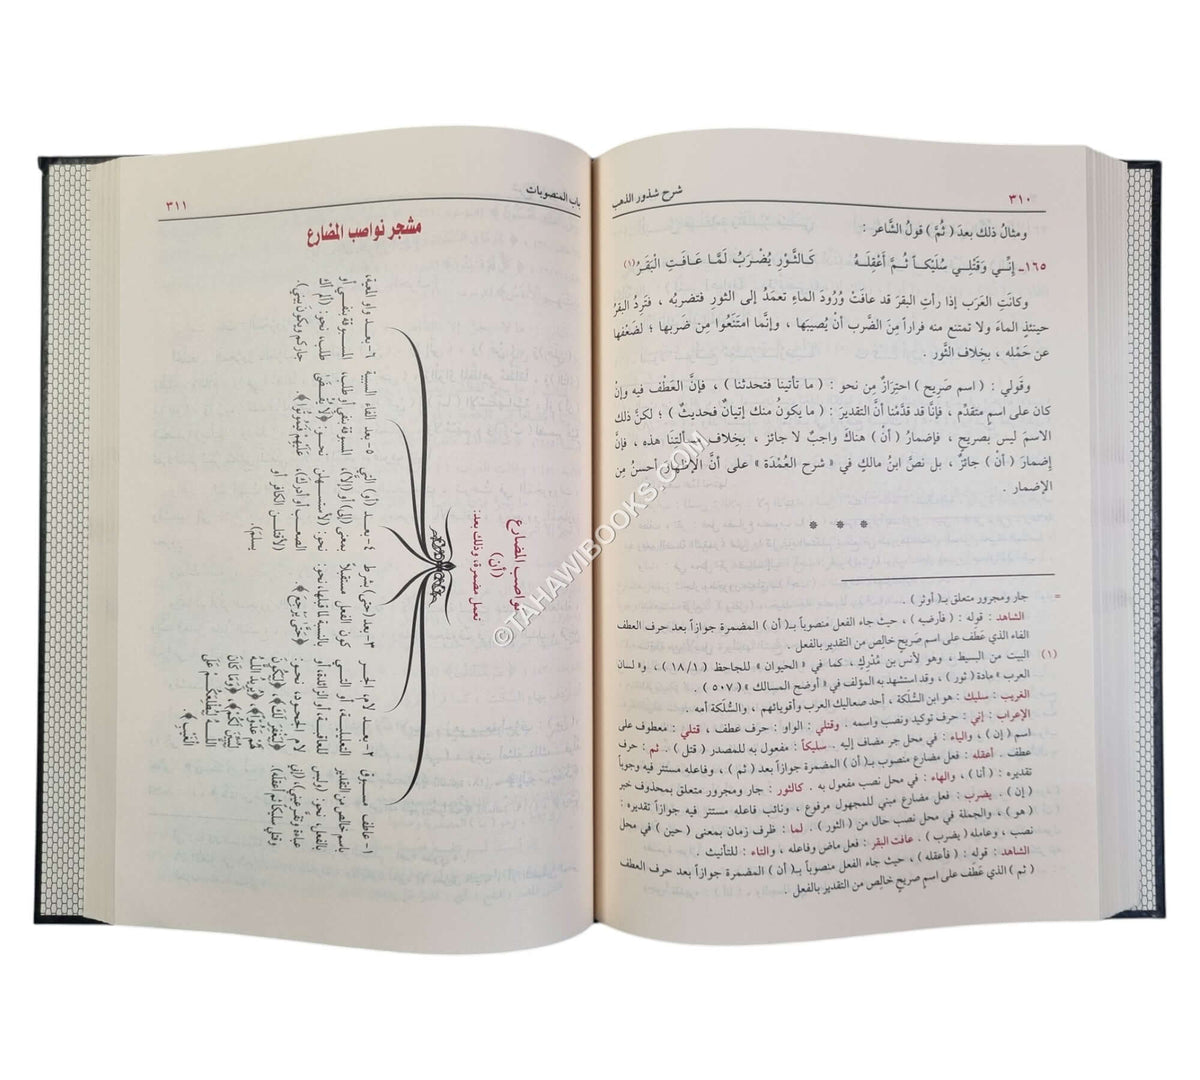 ٣١٠
شرح شذور الذهب
ومثالُ ذلك بعدَ ( ثُمَّ ) قولُ الشَّاعر :
١٦٥ـ إِنِّي وَقَتْلِي سُلَيْكاً ثُمَّ أَعْقِلَهُ كَالثَّوْرِ يُضْرَبُ لَمَّا عَافَتِ الْبَقَرُ (١)
وكانَتِ العَرَب إذا رأتِ البقرَ قد عافَتْ وُرُودَ الماءِ تعمَدُ إلى الثور فتضربُه ، فتَرِدُ البقرُ
حينئذٍ الماءَ ولا تمتنع منه فراراً مِنَ الضَّرب أنْ يُصيبَها ، وإنَّما امتَنَعُوا مِن ضَربها ؛ لضَعْفِها
عن حَمْله ، بخِلاف الثَّور .
وقَولي : ( اسم صَرِيح ) احتِرازٌ مِن نحو : ( ما تأتينا فتحدثنا ) ، فإنَّ العَطْف فيه وإنْ
كَان على اسمٍ متقدِّم ، فإنَّا قد قدَّمْنا أنَّ التقديرَ : ( ما يكونُ منك إتيانٌ فحديثٌ ) ؛ لكنَّ ذلك
الاسمَ ليس بصريح ، فإضمارُ ( أنْ ) هناك واجبٌ لا جائز ، بخِلاف مسألتنا هذه ، فإنَّ
إضمارَ ( أنْ ) جائزٌ ، بل نصَّ ابنُ مالكٍ في « شرح العُمْدَة » على أنَّ الإظهارَ أحسنُ مِن
الإضمار .
* * *
= جار ومجرور متعلق بـ( أوثر ) .
الشاهد : قوله : ( فأرضيه ) ، حيث جاء الفعل منصوباً بـ( أن ) المضمرة جوازاً بعد حرف العطف
الفاء الذي عَطَف على اسم صَرِيح خالِص من التقدير بالفعل .
(١) البيت من البسيط ، وهو لأنس بن مُدْرِك ، كما في « الحيوان » للجاحظ ( ١٨/١ ) ، و« لسان
العرب » مادة ( ثور ) ، وقد استشهد به المؤلف في « أوضح المسالك » ( ٥٠٧ ) .
الغريب : سليك : هو ابن السُّلَكة ، أحد صعاليك العرب وأقويائهم ، والسُّلَكة أمه .
الإعراب : إني : حرف توكيد ونصب واسمه . وقتلي : الواو : حرف عطف ، قتلي : معطوف على
اسم ( إن ) ، والياء : في محل جر مضاف إليه . سليكاً : مفعول به للمصدر ( قتل ) . ثم : حرف
عطف . أعقله : فعل مضارع منصوب بـ( أن ) المضمرة جوازاً بعد ( ثم ) ، وفاعله مستتر فيه وجوباً
تقديره : ( أنا ) ، والهاء : في محل نصب مفعول به . كالثور : جار ومجرور متعلق بمحذوف خبر
( إن ) . يضرب : فعل مضارع مبني للمجهول مرفوع ، ونائب فاعله مستتر فيه جوازاً تقديره :
( هو ) ، والجملة في محل نصب حال من ( الثور ) . لما : ظرف زمان بمعنى ( حين ) في محل
نصب ، وعامله ( يضرب ) . عافت البقر : فعل ماض وفاعله ، والتاء : للتأنيث .
الشاهد : قوله : ( فأعقله ) ، حيث جاء الفعل منصوباً بـ( أن ) المضمرة جوازاً بعد حرف العطف
( ثم ) الذي عَطَف على اسم صريح خالِص من التقدير بالفعل .
باب المنصوبات
٣١١
مشجر نواصب المضارع
نواصب المضارع
(أن)
تعمل مضمرة، وذلك بعد:
١- عاطف مسبوق
باسم خالص من التقدير
بالفعل، نحو: (ولبس
عباءة وتقر عيني)، (إني
وقتلي سليكا ثم أعقله).
٢- بعد لام الجر
التعليلية، أو التي
للعاقبة، أو الزائدة، أو
لام الجحود، نحو:
﴿لِيَغْفِرَ لَكَ﴾ ﴿لِيَكُونَ
لَهُمْ عَدُوًّا﴾ ﴿يُرِيدُ اللَّهُ
لِيُبَيِّنَ لَكُمْ﴾ ﴿وَمَا كَانَ
اللَّهُ لِيُطْلِعَكُمْ عَلَى
الْغَيْبِ﴾.
٣- بعد (حتى) بشرط
كون الفعل مستقبلاً
بالنسبة لما قبلها، نحو:
﴿حَتَّى يَرْجِعَ﴾
٤- بعد (أو) التي
بمعنى (إلى) أو (إلا)،
نحو: (لأستسهلن
الصعب أو أدرك)،
(لأقتلن الكافر أو
يسلم).
٥- بعد الفاء السببية
المسبوقة بنفي أو طلب،
نحو: ﴿لَا يُقْضَى
عَلَيْهِمْ فَيَمُوتُوا﴾.
٦- بعد واو المعية،
المسبوقة بنفي أو
طلب، نحو: (ألم أك
جاركم ويكون بيني).
©TAHAWIBOOKS.COM